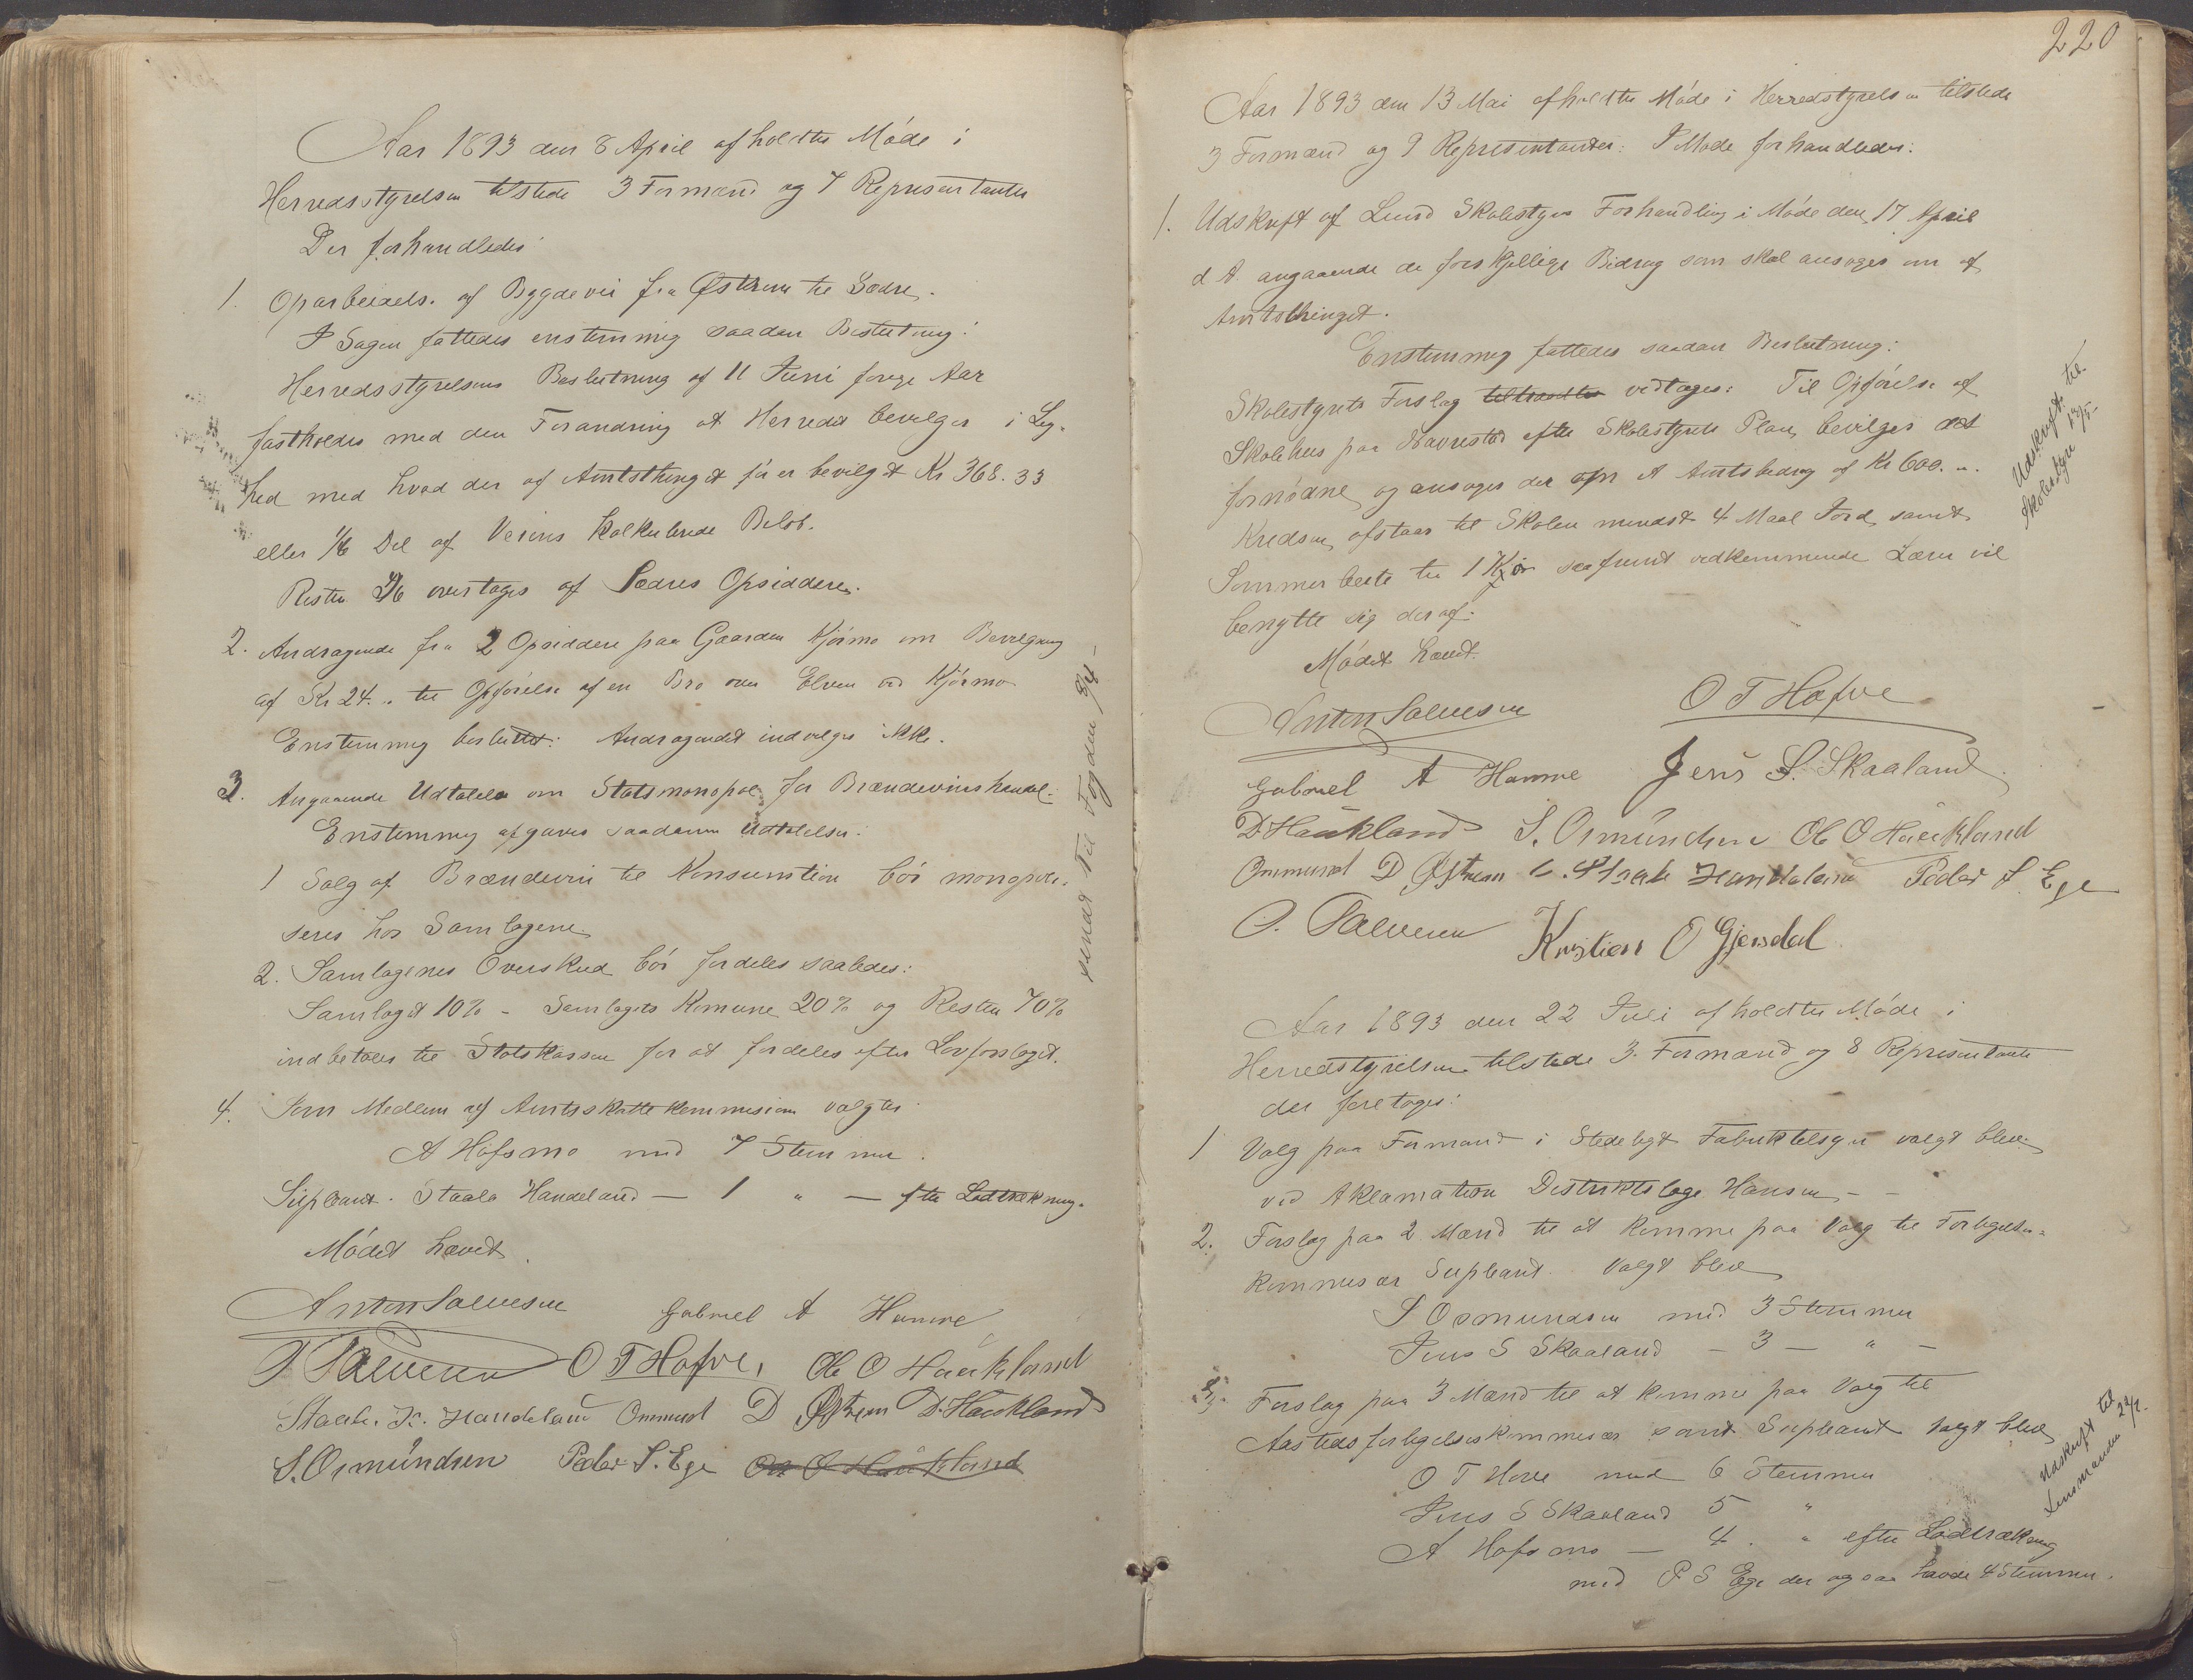 Aar 1893 den 8 April afholdtes Møde i
Herredsstyrelsen tilstede 3 Formænd og 7 Representanter
Der forhandledes
1. Oparbeidelse af Bygdevei fra Østrem til Sædre.
I Sagen fattedes enstemmig saadan Beslutning:
Herredsstyrelsens Beslutning af 11 Juni forrige Aar
fastholdes med den Forandring at Herredet bevilger i Lig-
hed med hvad der af Amtsthinget er bevilget Kr 368.33
eller 1/6 Del af Veiens kalkulerede Beløb.
Resten overtages af Sædres Opsiddere.
2. Andragende fra 2 Opsiddere paa Gaarden Kjørmo om Bevilgning
af Kr 24.. til Opførelse af en Bro over Elven ved Kjørmo
Enstemmig besluttet: Andragendet indvilges ikke.
3. Angaaende Udtalelse om Statsmonopol for Brændevinshandel.
Enstemmig afgaves saadanne Udtalelser:
1 Salg af Brændevin til Konsumtion bør monopoli-
seres hos Samlagene
2. Samlagenes Overskud bør fordeles saaledes:
Samlaget 10% - Samlagets Komune 20% og Resten 70%
indbetales til Statskassen for at fordeles efter Lovforslaget.
4. Som Medlem af Amtsskattekommission valgtes
A Hofsmo med 7 Stemmer.
Supleant. Staale Handeland - 1 " - efter Lodtrækning.
Mødet hævet.
sendt til Fogden
Anton Salvesen Gabriel A Hamre
T. Salvesen O T Hofve, Ole O Haukland
Staale K. Handeland Ommund D Østrem D. Haukland
S. Osmundsen Peder S. Ege Ole O Haukland
220
Aar 1893 den 13 Mai afholdtes Møde i Herredstyrelsen tilstede
3 Formænd og 9 Representanter. I Møde forhandledes:
1. Udskrift af Lund Skolestyres Forhandling i Møde den 17 April
d A angaaende de forskjellige Bidrag som skal ansøges om af
Amtsthinget.
Enstemmig fattedes saadan Beslutning:
Skolestyrets Forslag tiltrædtes vedtages: Til Opførelse af
Skolehus paa Navrestad efter Skolestyrets Plan, bevilges det
fornødne, og ansøges der om et Amtsbidrag af Kr 600..
Kredsen afstaar til Skolen mindst 4 Maal Jord, samt
Sommerbeite til 1 Kjør saafremt vedkommende Lærer vil
benytte sig deraf.
Mødet hævet.
Udskrift til
Skolestyre 13/5.
Anton Salvesen O T Hofve
Gabriel A Hamre Jens S. Skaaland
D. Haukland S. Osmundsen Ole O Haukland
Ommund D Østrem Staale Handeland Peder S. Ege
T. Salvesen Kristian O Gjersdal
Aar 1893 den 22 Juli afholdtes Møde i
Herredstyrelsen tilstede 3 Formænd og 8 Representanter
der foretages:
1 Valg paa Formand i Stedeligt Fabriktilsyn valgt blev
ved Aklamation Distriktslæge Hansen - -
2. Forslag paa 2 Mænd til at komme paa Valg til Forligelses-
kommisær Supleant. Valgt blev
S Osmundsen med 3 Stemmer
Jens S Skaaland - 3 - " -
3. Forslag paa 3 Mænd til at komme paa Valg til
Aastedsforligelseskommisær samt Supleant valgt blev
O T Hove med 6 Stemmer
Jens S Skaaland 5 "
A Hofsmo - 4. " efter Lodtrækning
med P S Ege der ogsaa havde 4 Stemmer.
Udskrift til
Lensmanden